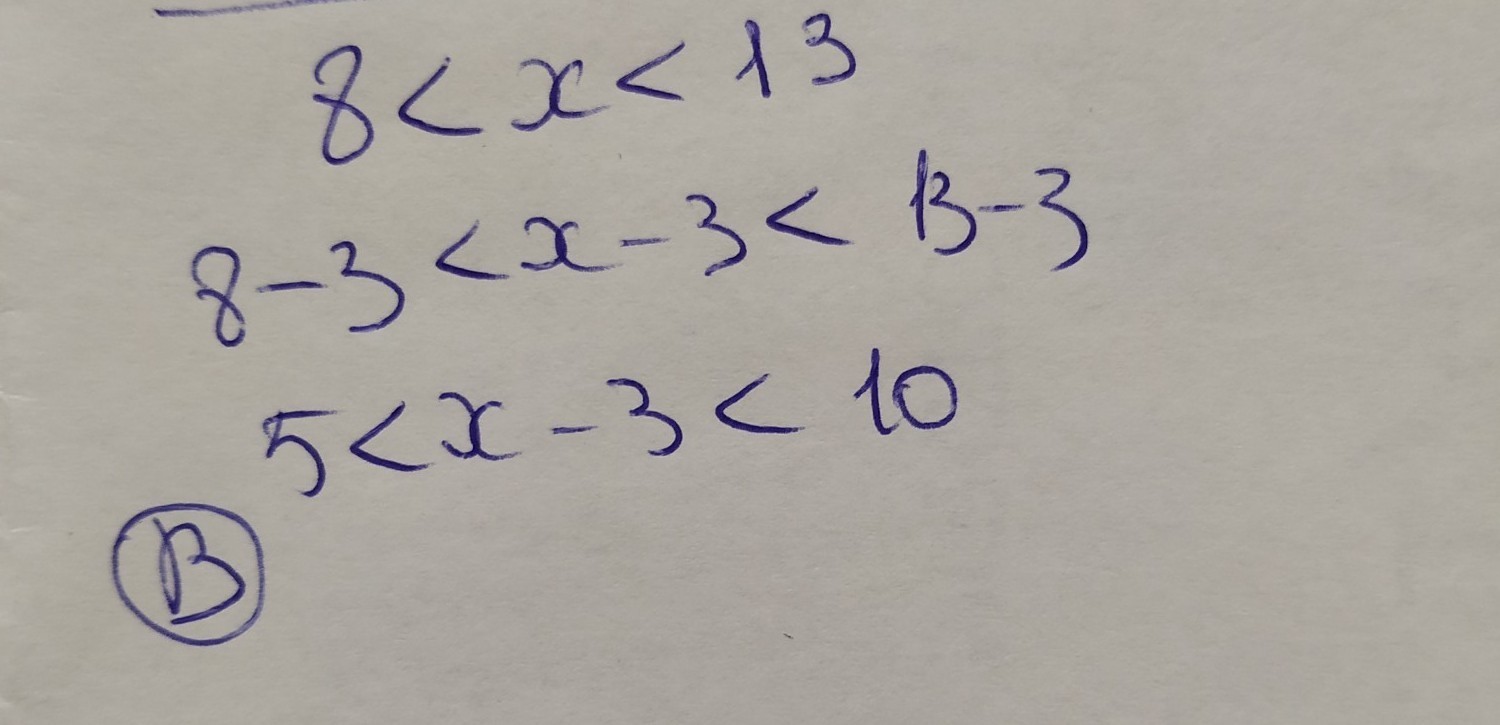 8 < x < 13
8 - 3 < x - 3 < 13 - 3
5 < x - 3 < 10
B